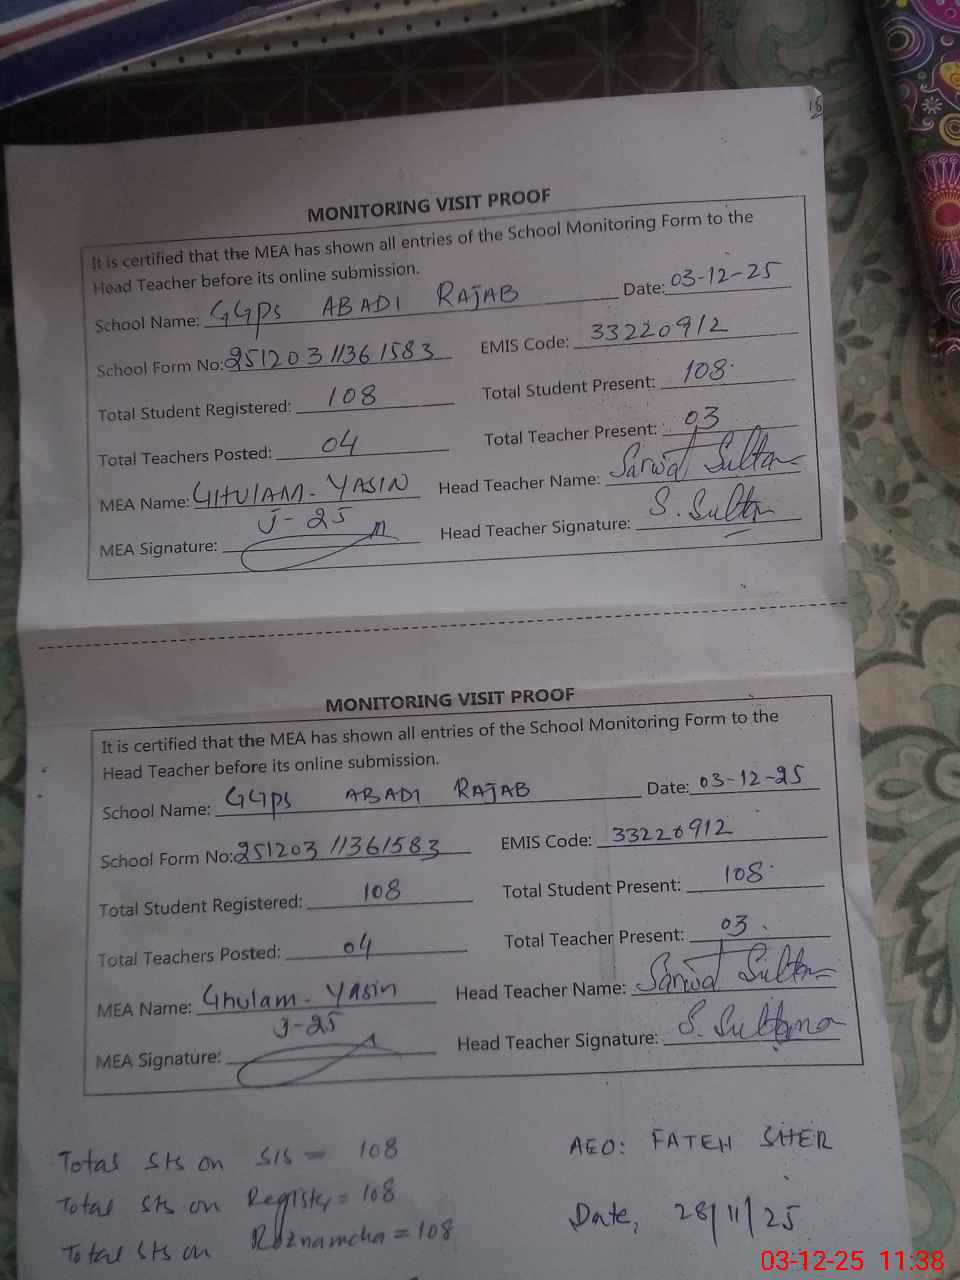 18
MONITORING VISIT PROOF
It is certified that the MEA has shown all entries of the School Monitoring Form to the
Head Teacher before its online submission.
School Name: GGPS ABADI RAJAB Date: 03-12-25
School Form No: 25120311361583 EMIS Code: 33220912
Total Student Registered: 108 Total Student Present: 108
Total Teachers Posted: 04 Total Teacher Present: 03
MEA Name: GHULAM-YASIN Head Teacher Name: Sarwat Sultan
J-25
MEA Signature: Head Teacher Signature: S. Sultan
MONITORING VISIT PROOF
It is certified that the MEA has shown all entries of the School Monitoring Form to the
Head Teacher before its online submission.
School Name: GGPS ABADI RAJAB Date: 03-12-25
School Form No: 25120311361583 EMIS Code: 33220912
Total Student Registered: 108 Total Student Present: 108
Total Teachers Posted: 04 Total Teacher Present: 03
MEA Name: Ghulam-YASIN Head Teacher Name: Sarwat Sultan
J-25
MEA Signature: Head Teacher Signature: S. Sultana
Total Sts on SIS = 108 AEO: FATEH SHER
Total Sts on Register = 108
Total Sts on Roznamcha = 108 Date, 28/11/25
03-12-25 11:38